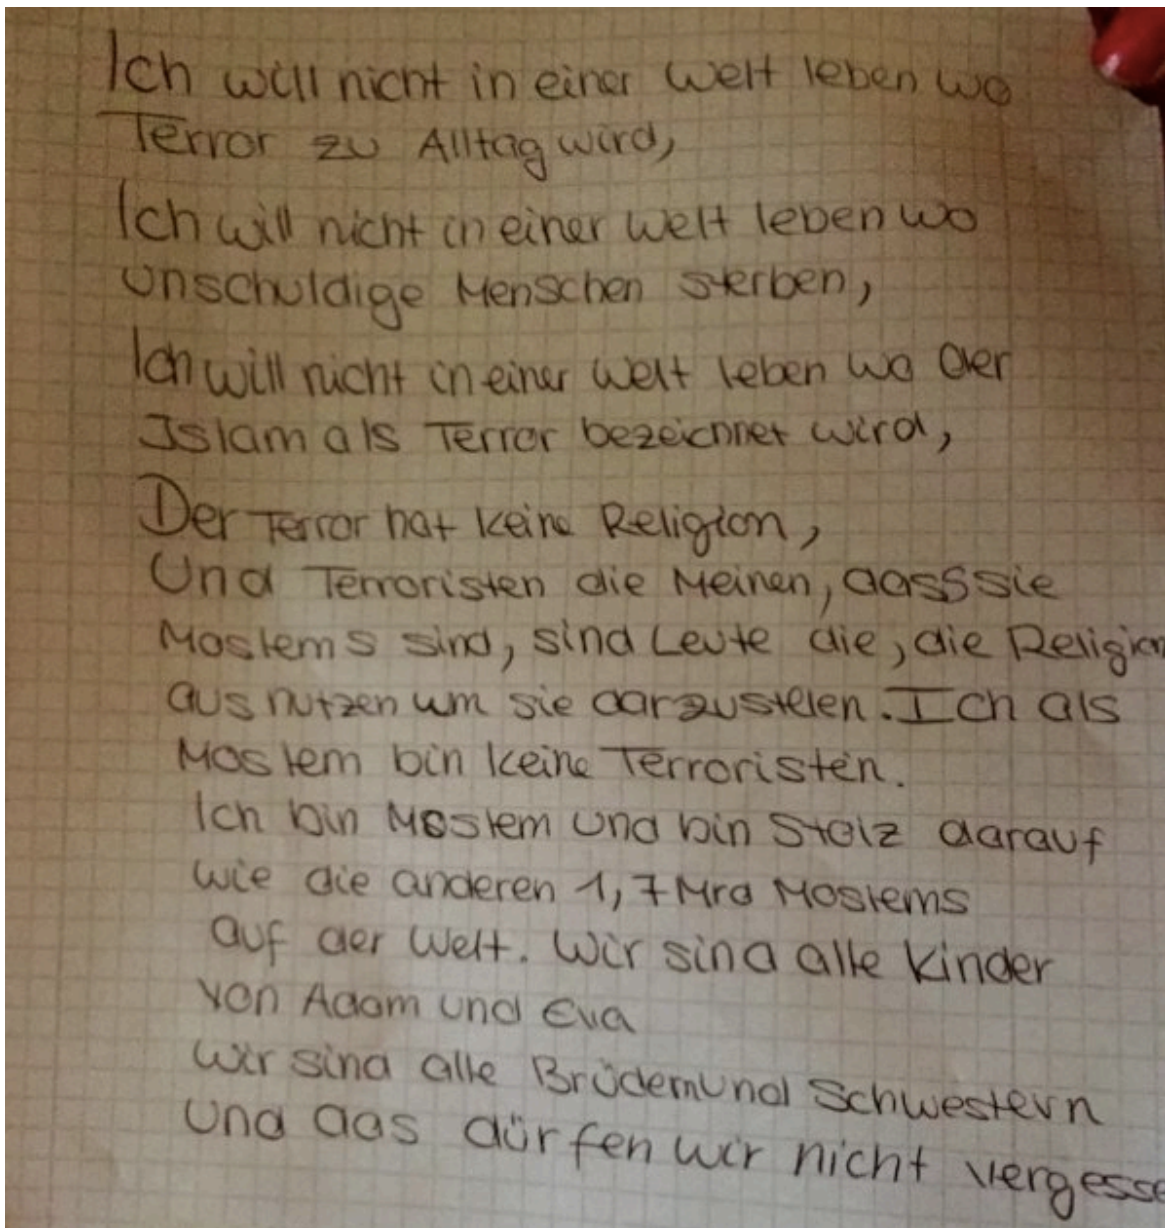 Ich will nicht in einer Welt leben wo
Terror zu Alltag wird,
Ich will nicht in einer Welt leben wo
unschuldige Menschen sterben,
Ich will nicht in einer Welt leben wo der
Islam als Terror bezeichnet wird,
Der Terror hat keine Religion,
Und Terroristen die Meinen, dasS sie
Moslems sind, sind Leute die, die Religion
aus nutzen um sie darzustelen. Ich als
Moslem bin keine Terroristen.
Ich bin Moslem und bin Stolz darauf
wie die anderen 1,7 Mrd Moslems
auf der Welt. Wir sind alle Kinder
von Adam und Eva
wir sind alle Brüdern und Schwestern
und das dürfen wir nicht vergesse